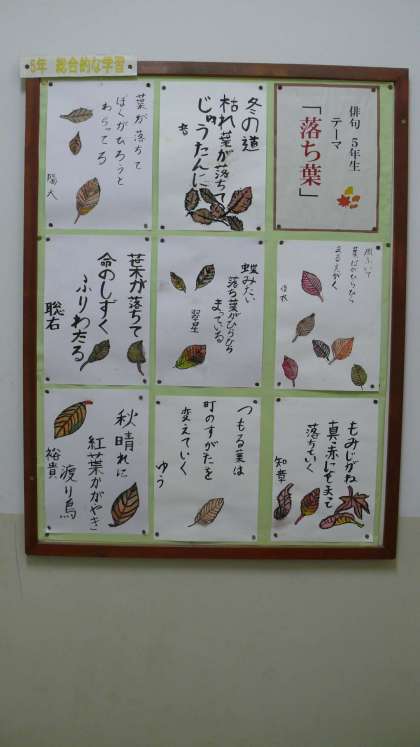 5年 総合的な学習
俳句 5年生
テーマ
「落ち葉」
冬の道
枯れ葉が落ちて
じゅうたんに
葉が落ちて
ぼくがひろうと
わらってる
陽大
風ふいて
葉っぱがひらひら
蝶みたい
落ち葉がひらひら
まっている
翌星
葉が落ちて
命のしずく
ふりわたる
聡右
もみじがね
真っ赤にそまって
落ちていく
知幸
つもる葉は
町のすがたを
変えていく
ゆう
秋晴れに
紅葉かがやき
渡り鳥
裕貴